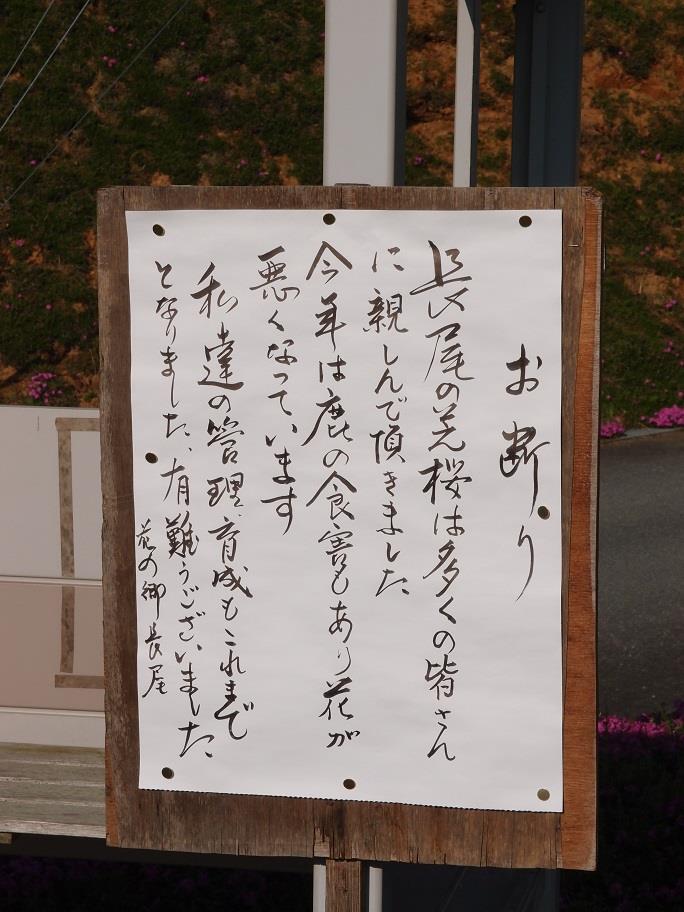 お断り
長尾の芝桜は多くの皆さん
に親しんで頂きました
今年は鹿の食害もあり花が
悪くなっています
私達の管理、育成もこれまで
となりました、有難うございました
花の郷 長尾